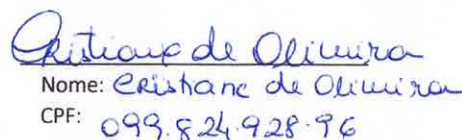 Cristiane de Oliveira
Nome: Cristiane de Oliveira
CPF: 099.824.928-96